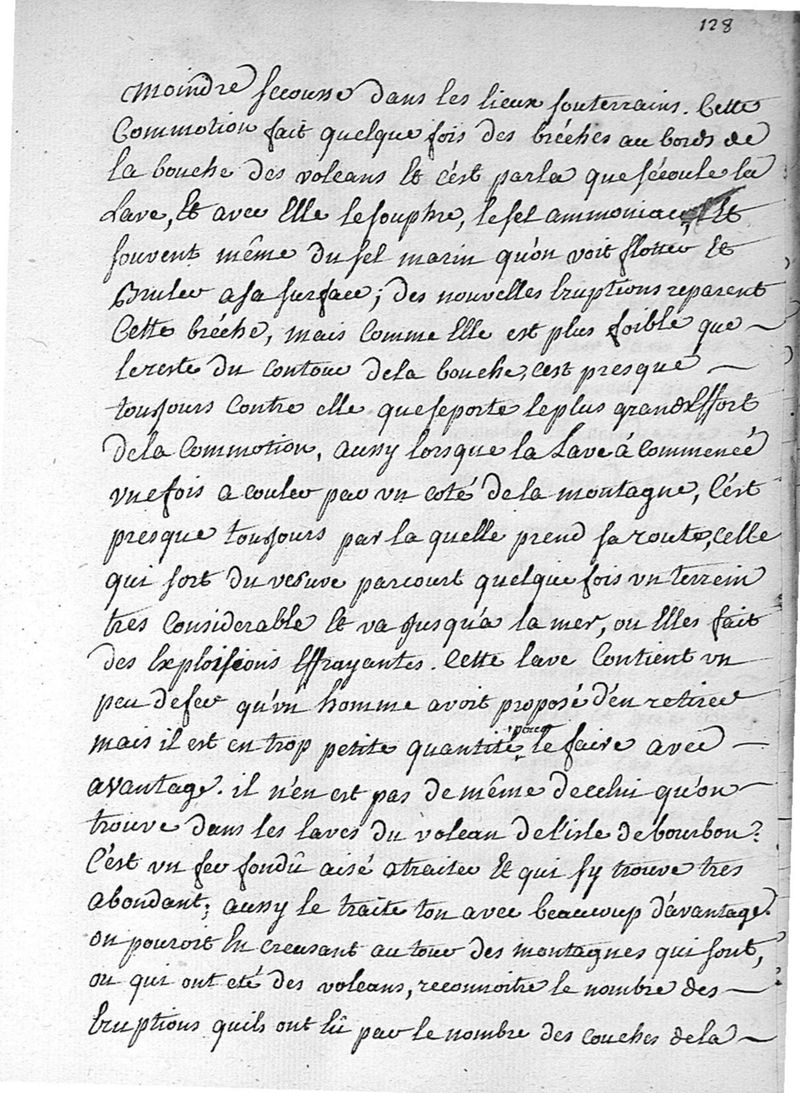 128
moindre secousse dans les lieux souterrains. Cette
Commotion fait quelque fois des bréches au bords de
la bouche des volcans Et c'est parla que sécoule la
Lave, Et avec Elle le souphre, le sel ammoniac, Et
souvent même du sel marin qu'on voit flotter Et
Bruler a sa surface; des nouvelles Eruptions reparent
Cette bréche, mais Comme Elle est plus foible que
le reste du contour dela bouche, cest presque
toujours Contre elle que se porte le plus grand Effort
dela Commotion, aussy lorsque la Lave à Commencé
vne fois a couler par vn coté de la montagne, C'est
presque toujours par la quelle prend sa route, celle
qui sort du vesuve parcourt quelque fois vn terrein
tres Considerable Et va jusqu'a la mer, ou Elles fait
des Exploisions Effrayantes. Cette lave Contient vn
peu de fer qu'vn homme avoit proposé d'en retirer
mais il est en trop petite quantité pour le faire avec
avantage. il n'en est pas de même de celui qu'on
trouve dans les laves du volcan de l'isle de bourbon:
C'est vn fer fondû aisé a traiter Et qui s'y trouve tres
abondant; aussy le traite ton avec beaucoup d'avantage.
on pouroit En creusant au tour des montagnes qui sont,
ou qui ont eté des volcans, reconnoitre le nombre des
Eruptions quils ont Eû par le nombre des couches dela